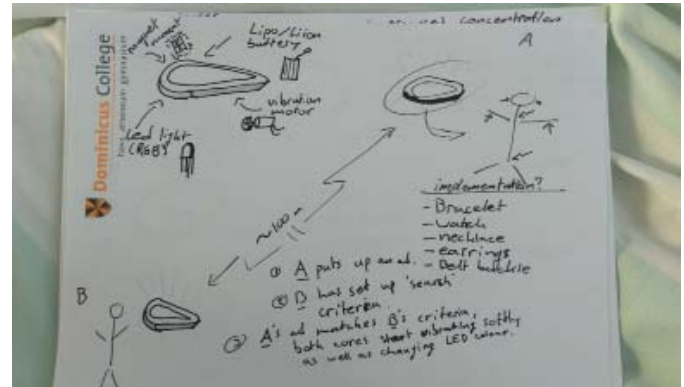 Dominicus College
havo atheneum gymnasium
magnet
Lipo/Liion
battery
vibration
motor
Led light
(RGB)
concentration
A
~100 m
implementation?
- Bracelet
- watch
- necklace
- earrings
- Belt buckle
B
① A puts up an ad.
② B has set up 'search'
criteria.
③ A's ad matches B's criteria,
both cores start vibrating softly
as well as changing LED colour.